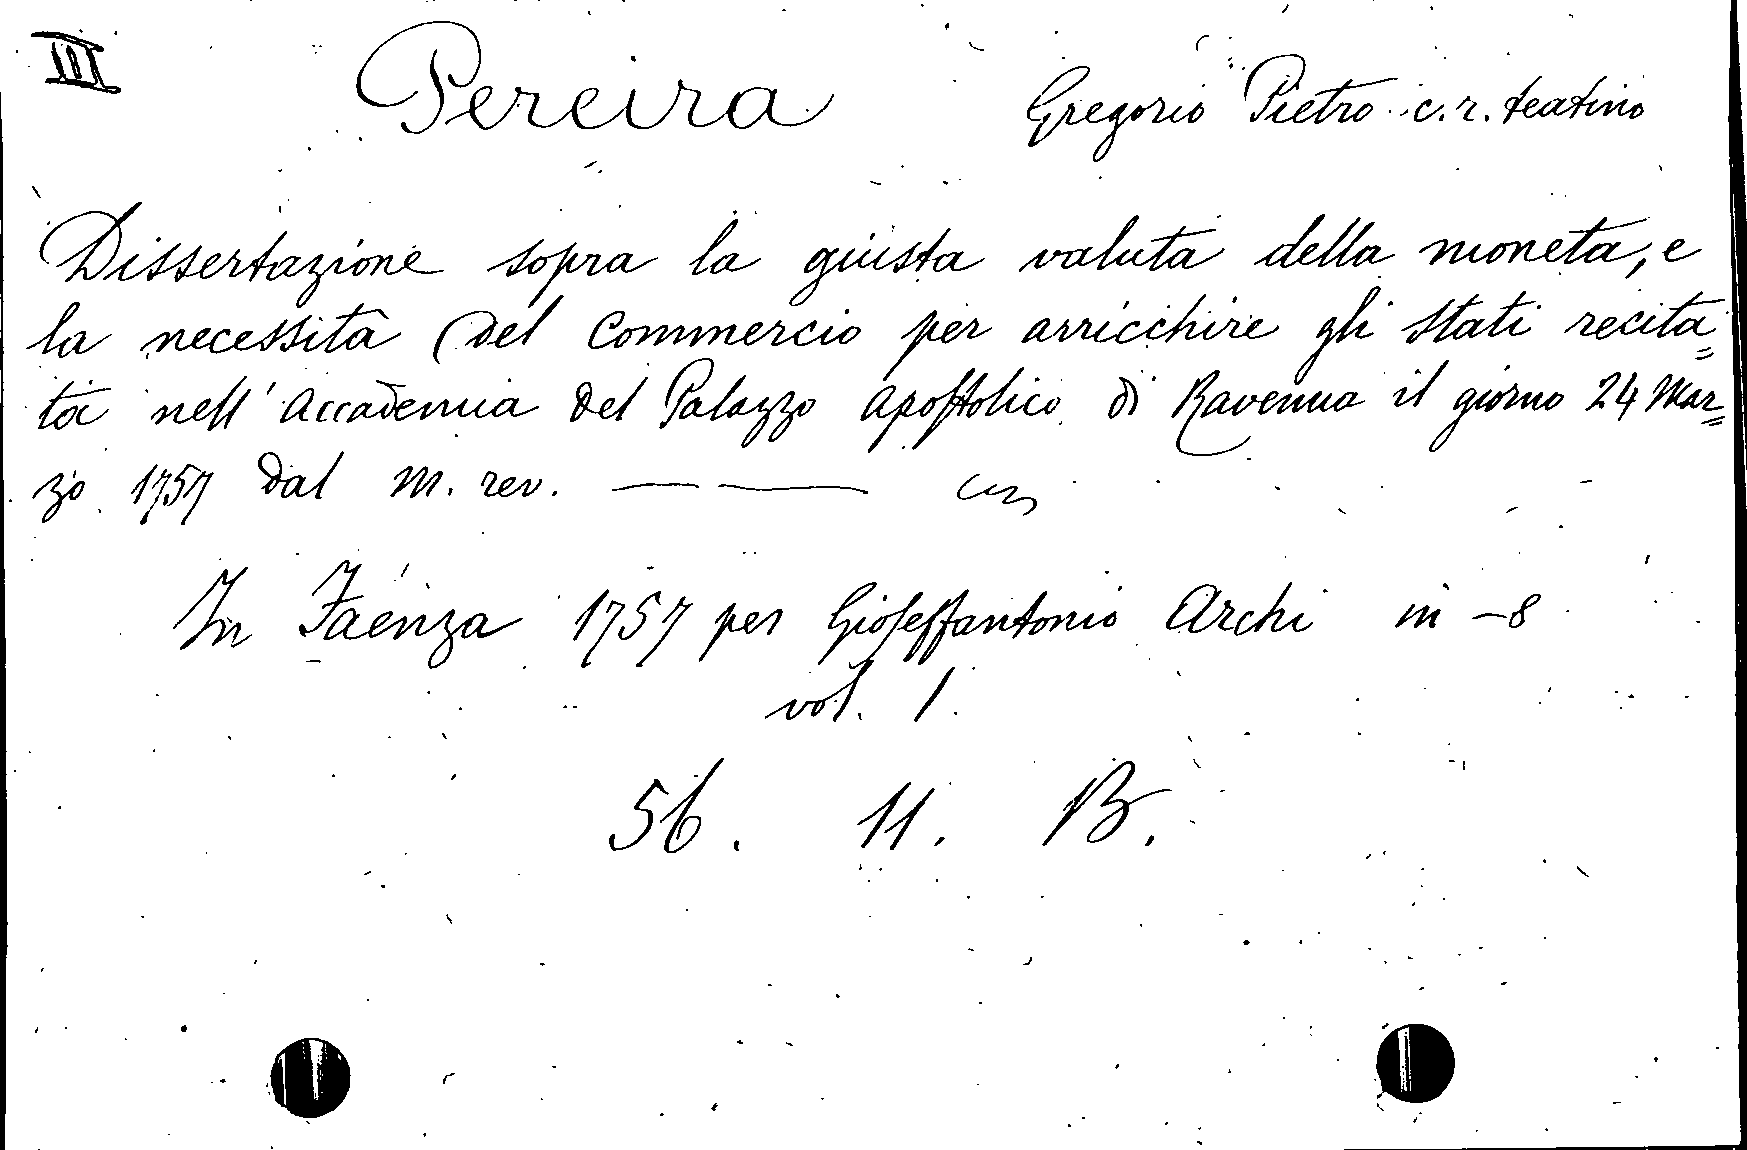 III
Pereira Gregorio Pietro c. r. teatino
Dissertazione sopra la giusta valuta della moneta, e
la necessità del Commercio per arricchire gli Stati recita=
ta nell' Accademia del Palazzo Apostolico di Ravenna il giorno 24 Mar=
zo 1757 dal M. rev. — —
In Faenza 1757 per Gioseffantonio Archi in -8
vol. 1.
56. 11. B.